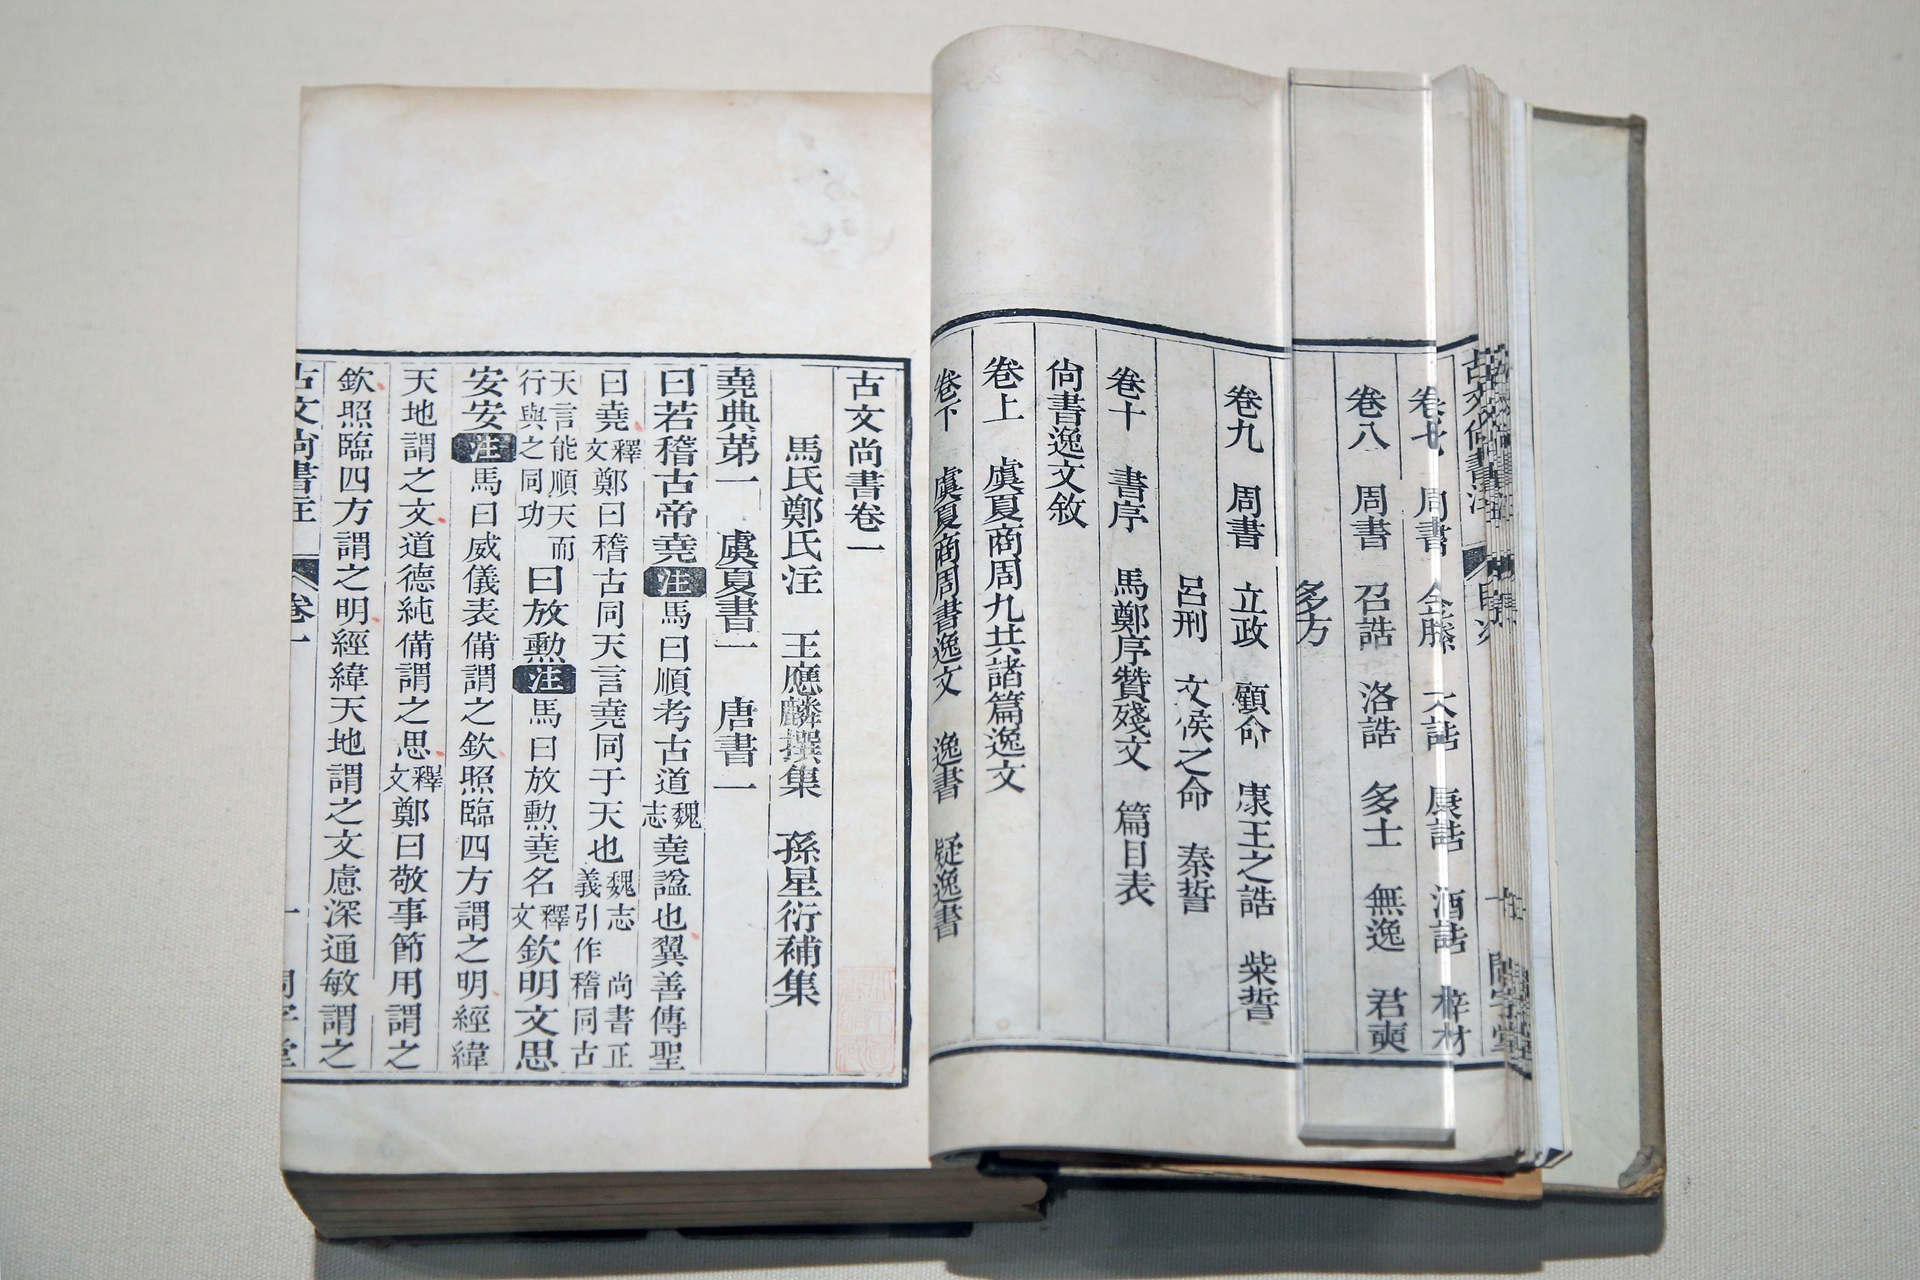 卷七　周書　金縢　大誥　康誥　酒誥　梓材
卷八　周書　召誥　洛誥　多士　無逸　君奭
多方
卷九　周書　立政　顧命　康王之誥　柴誓
呂刑　文侯之命　秦誓
卷十　書序　馬鄭序贊殘文　篇目表
尙書逸文敘
卷上　虞夏商周九共諸篇逸文
卷下　虞夏商周書逸文　逸書　疑逸書
古文尙書卷一
馬氏鄭氏注　王應麟撰集　孫星衍補集
堯典第一　虞夏書一　唐書一
曰若稽古帝堯注馬曰順考古道魏志堯諡也翼善傳聖
曰堯釋文鄭曰稽古同天言堯同于天也魏志義引作　尚書正稽同古
天言能順天而行與之同功曰放勲注馬曰放勲堯名釋文欽明文思
安安注馬曰威儀表備謂之欽照臨四方謂之明經緯
天地謂之文道德純備謂之思釋文鄭曰敬事節用謂之
欽照臨四方謂之明經緯天地謂之文慮深通敏謂之
古文尙書注　卷一　一